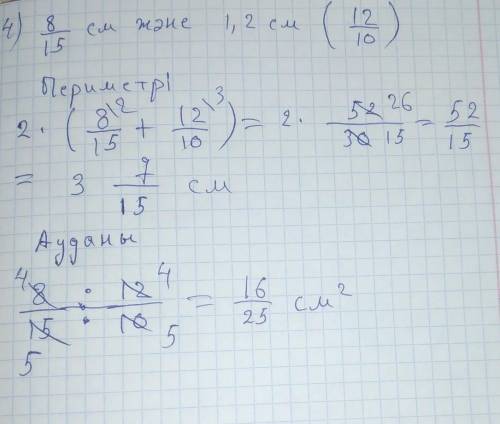 4) 8/15 см және 1,2 см (12/10)
Периметрі
2 · (8\2/15 + 12\3/10) = 2 · 52 26/30 15 = 52/15
= 3 7/15 см
Ауданы
4 8/15 5 : 12 4/10 5 = 16/25 см²